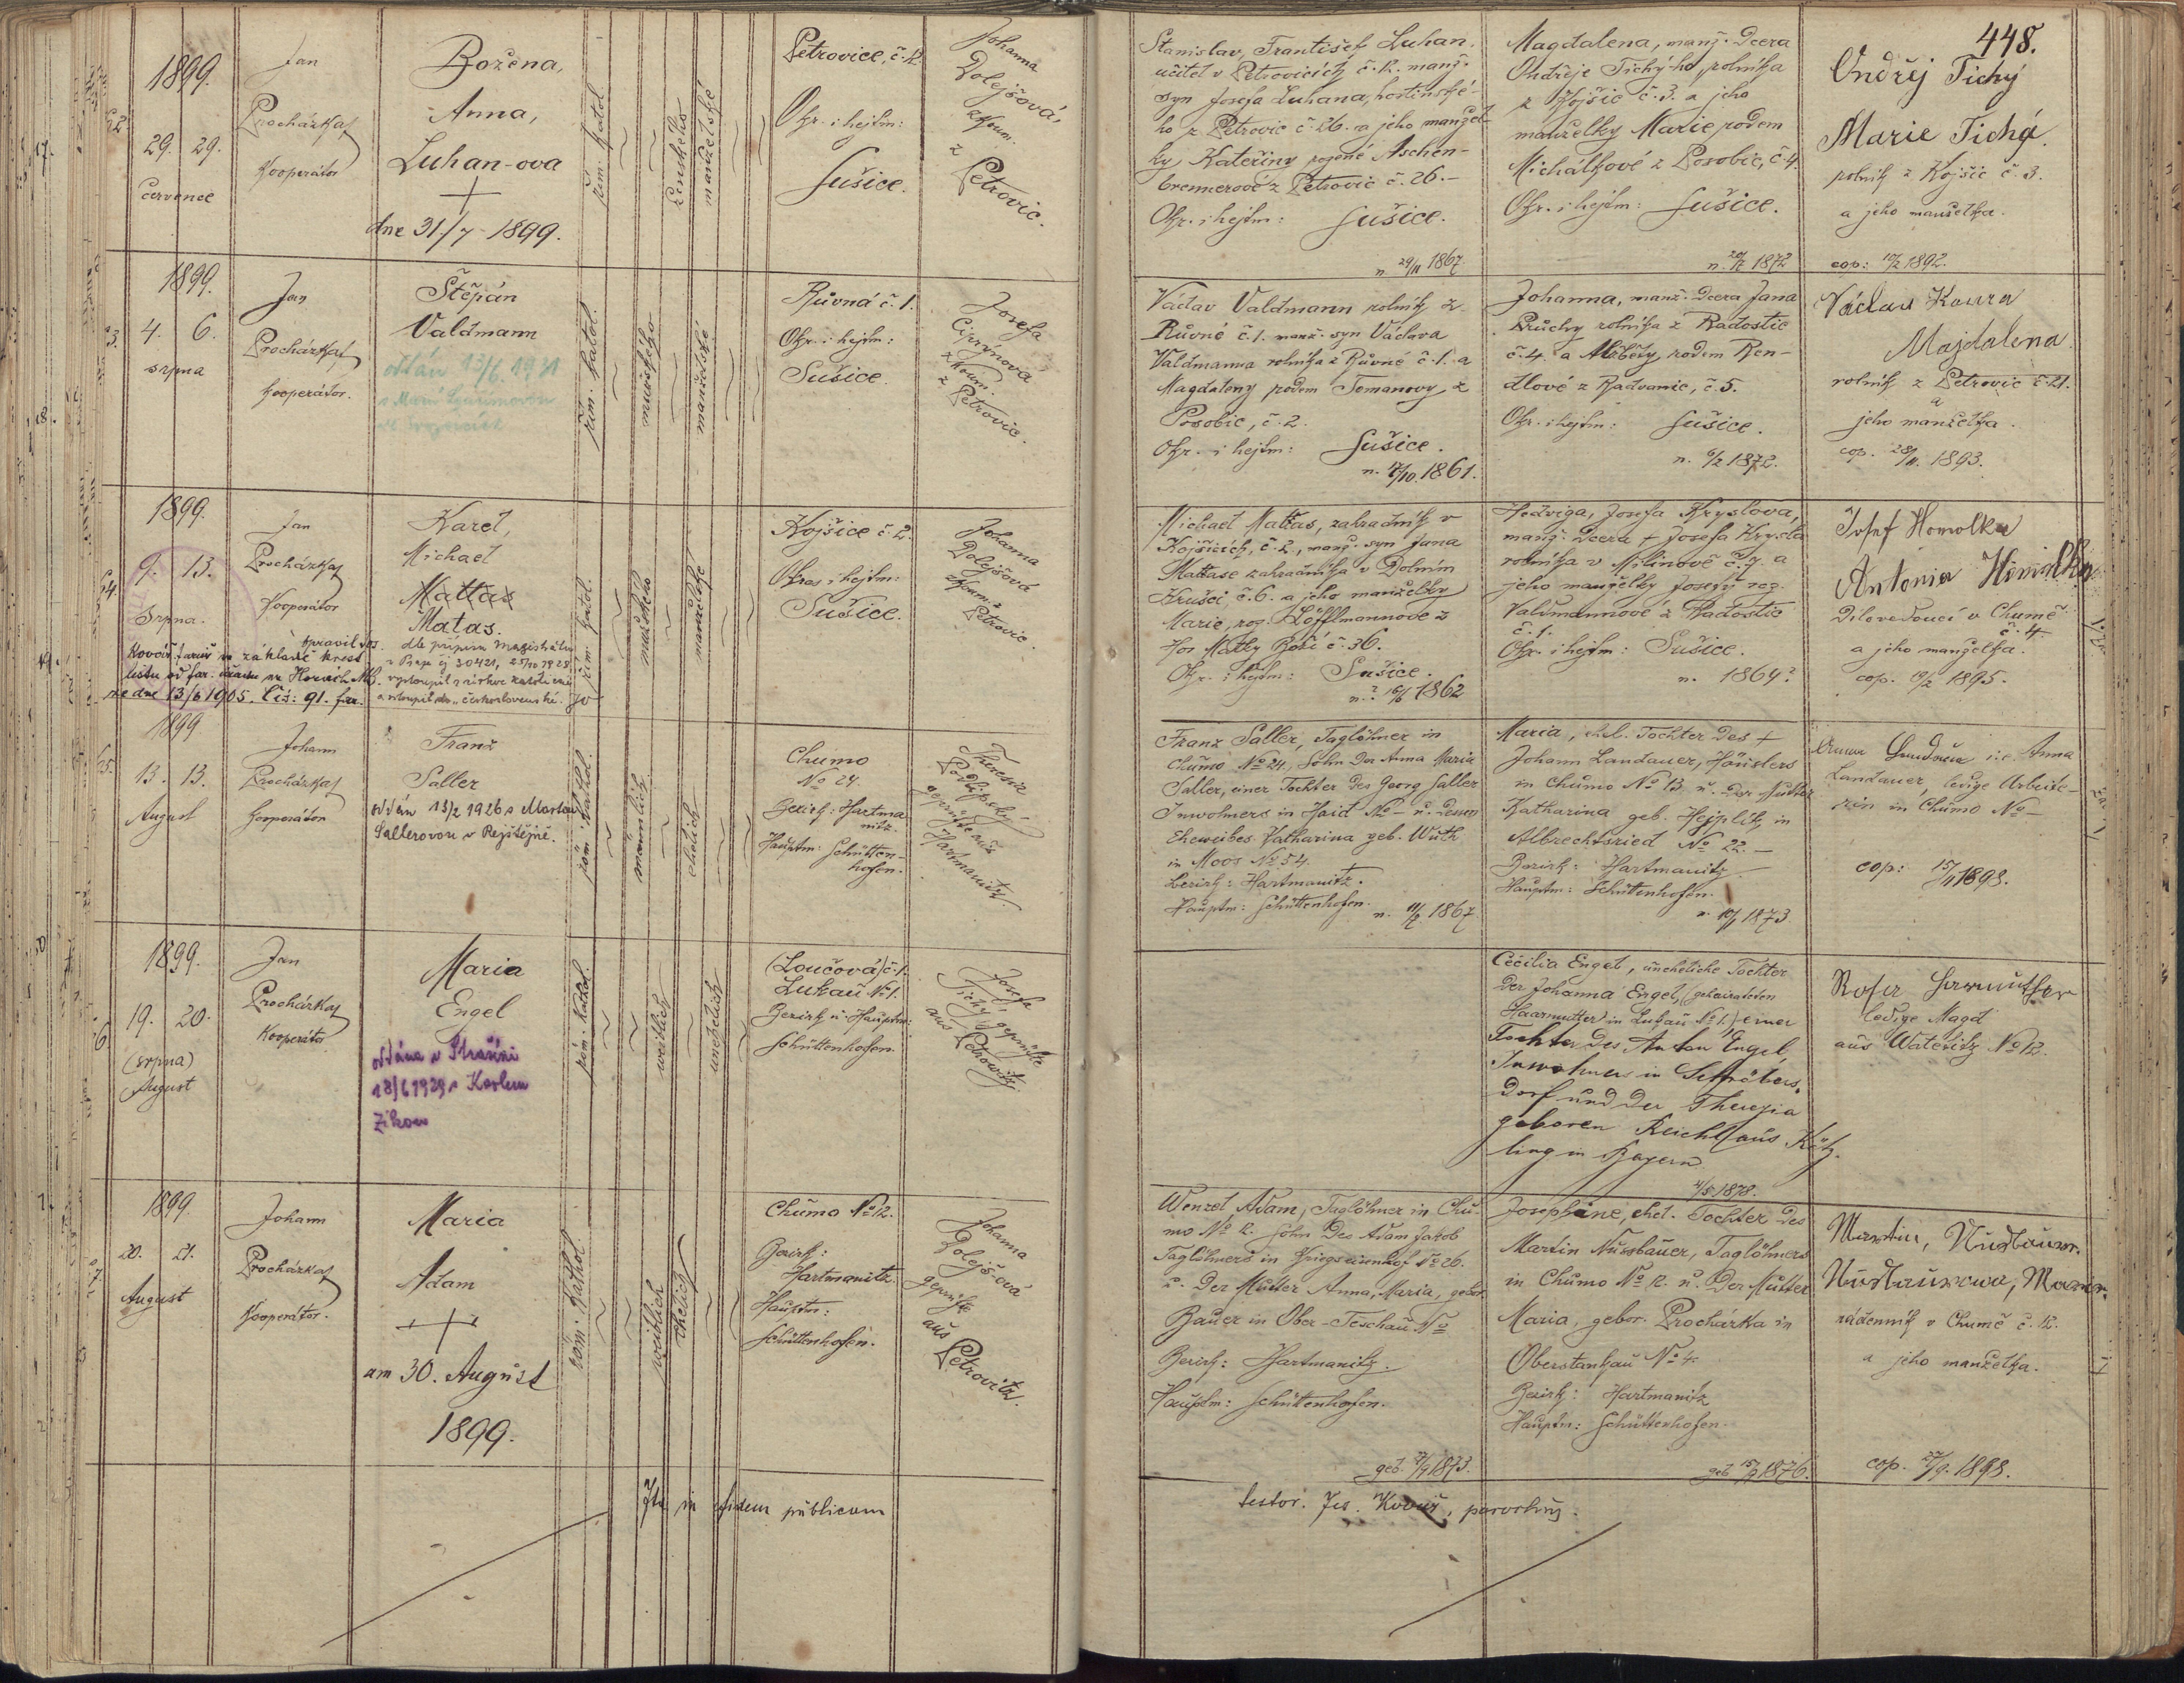 448.
1899.
29. 29.
července
Jan
Procházka
Kooperátor
Božena,
Anna,
Luhan-ova
dne 31./7 1899.
řím. katol.
ženského
manželské
Petrovice, č. 12.
Okr. i hejtm:
Sušice.
Johanna
Dolejšová,
zkouš.
z
Petrovic.
Stanislav, František Luhan,
učitel v Petrovicích č. 12. manž.
syn Josefa Luhana, hostinské-
ho z Petrovic č. 26. a jeho manžel-
ky Kateřiny rozené Aschen-
brennerové z Petrovic č. 26.
Okr. i hejtm: Sušice.
n. 29/11 1867
Magdalena, manž. dcera
Ondřeje Tichý-ho rolníka
z Kojšic č. 3. a jeho
manželky Marie rodem
Michálkové z Posobic, č. 4.
Okr. i hejtm: Sušice.
1872
Ondřej Tichý
Marie Tichá.
rolník z Kojšic č. 3.
a jeho manželka.
cop: 1892.
1899.
4. 6.
srpna
Jan
Procházka
Kooperátor.
Štěpán
Valdmann
oddán 13/6. 1921
řím. katol.
mužského
manželské
Růvná č. 1.
Okr. i hejtm:
Sušice.
Josefa
Ciprýnova
zkouš.
z
Petrovic.
Václav Valdmann rolník z
Růvné č. 1. manž. syn Václava
Valdmanna rolníka z Růvné č. 1. a
Magdaleny rodem Tomanovy, z
Posobic, č. 2.
Okr. i hejtm: Sušice.
1861.
Johanna, manž. dcera Jana
Průchy rolníka z Radostic
č. 4. a Alžběty rodem Ren-
dlové z Radvanic, č. 5.
Okr. i hejtm: Sušice.
n. 6/2 1872.
Václav Koura
Majdalena
rolník z Petrovic č. 21.
a
jeho manželka.
cop. 28/11. 1893.
1899.
9. 13.
Srpna.
Jan
Procházka
Kooperátor
Karel,
Michael
Mattas
Matas.
opravil Jos.
na základě křest.
listu od far.
ze dne 13/6 1905. Čís: 91. far.
dle přípisu Magistrátu
v Praze čj 30421, 25/10 1928
vystoupil z církve katolické
a vstoupil do „československé.
řím. katol.
mužského
manželské
Kojšice č. 2.
Okres i hejtm:
Sušice
Johanna
Dolejšová
zkouš. z
Petrovic.
Michael Mattas, zahradník v
Kojšicích, č. 2., manž. syn Jana
Mattase zahradníka v Dolním
Krušci, č. 6. a jeho manželky
Marie, roz. Löfflmannové z
Hor Matky Boží č. 36.
Okr. i hejtm: Sušice.
1862
Hedviga, Josefa Kryslova,
manž. dcera + Josefa Krysla
rolníka v Milínově č. 7. a
jeho manželky Josefy roz.
Valdmannové z Radostic
č. 1.
Okr. i hejtm: Sušice.
n. 1864?
Josef Homolka
Antonia
Dílovedoucí v Chumě
č. 4
a jeho manželka.
cop. 19/2 1895.
1899
13. 13.
August
Johann
Procházka
Kooperátor
Franz
Saller
oddán 13/2 1926 s Marta
Sallerovou v Rejštejně.
röm. kathol.
männlich
ehelich
Chumo
No 24.
Bezirk: Hartma
nitz.
Hauptm: Schütten-
hofen.
Theresia
geprüfte aus
Hartmanitz.
Franz Saller, Taglöhner in
Chumo No 24, Sohn der Anna Maria
Saller, einer Tochter des Georg Saller
Inwohners in Haid No – u. dessen
Eheweibes Katharina geb. Wuth
in Moos No 54.
Bezirk: Hartmanitz.
Hauptm: Schüttenhofen.
n. 11/2 1867
Maria, ehel. Tochter des +
Johann Landauer, Häuslers
in Chumo No 13 u. der Mutter
Katharina geb. Hejplik in
Albrechtsried No 22.
Bezirk: Hartmanitz
Hauptm: Schüttenhofen.
1873
i.e. Anna
Landauer, ledige Arbeite-
rin in Chumo No –
cop: 15/11 1898.
1899.
19. 20.
(srpna)
August
Jan
Procházka
Kooperátor
Maria
Engel
oddána v Strašíni
18/6 1929 s Karlem
Zíkou
röm. kathol.
weiblich
unehelich
(Loučová) č. 1.
Lukau No 1.
Bezirk u. Hauptm:
Schüttenhofen.
Josefa
Tichý, geprüfte
aus
Petrowitz.
Cecilia Engel, uneheliche Tochter
der Johanna Engel, (geheirateten
Haarmutter in Lukau No 1.) einer
Tochter des Anton Engel,
Inwohners in Schröbers-
dorf und der Theresia
geboren Reichl aus Kötz-
ting in Bayern.
4/5 1878.
Rosa Harmutter
ledige Magd
aus Watetitz No 12.
1899.
20. 21.
August
Johann
Procházka
Kooperátor.
Maria
Adam
am 30. August
1899.
röm. kathol.
weiblich
ehelich
Chumo No 12.
Bezirk:
Hartmanitz.
Hauptm:
Schüttenhofen.
Johanna
Dolejš-ová
geprüfte
aus
Petrovitz.
Wenzel Adam, Taglöhner in Chu-
mo No 12. Sohn des Adam Jakob
Taglöhners in No 26.
u. der Mutter Anna, Maria, gebor.
Bauer in Ober-Teschau No
Bezirk: Hartmanitz.
Hauptm: Schüttenhofen.
geb. 1873.
Josephine, ehel. Tochter des
Martin Nussbauer, Taglöhners
in Chumo No 12. u. der Mutter
Maria, gebor. Procházka in
Oberstankau No 4.
Bezirk: Hartmanitz
Hauptm: Schüttenhofen.
geb. 1876.
Martin, Nusbauer.
Nusbaurowa, Marie.
nádenník v Chumě č. 12.
a jeho manželka.
cop. 1898.
Ita in fidem publicam
testor. Jos. Kovář, parochus.